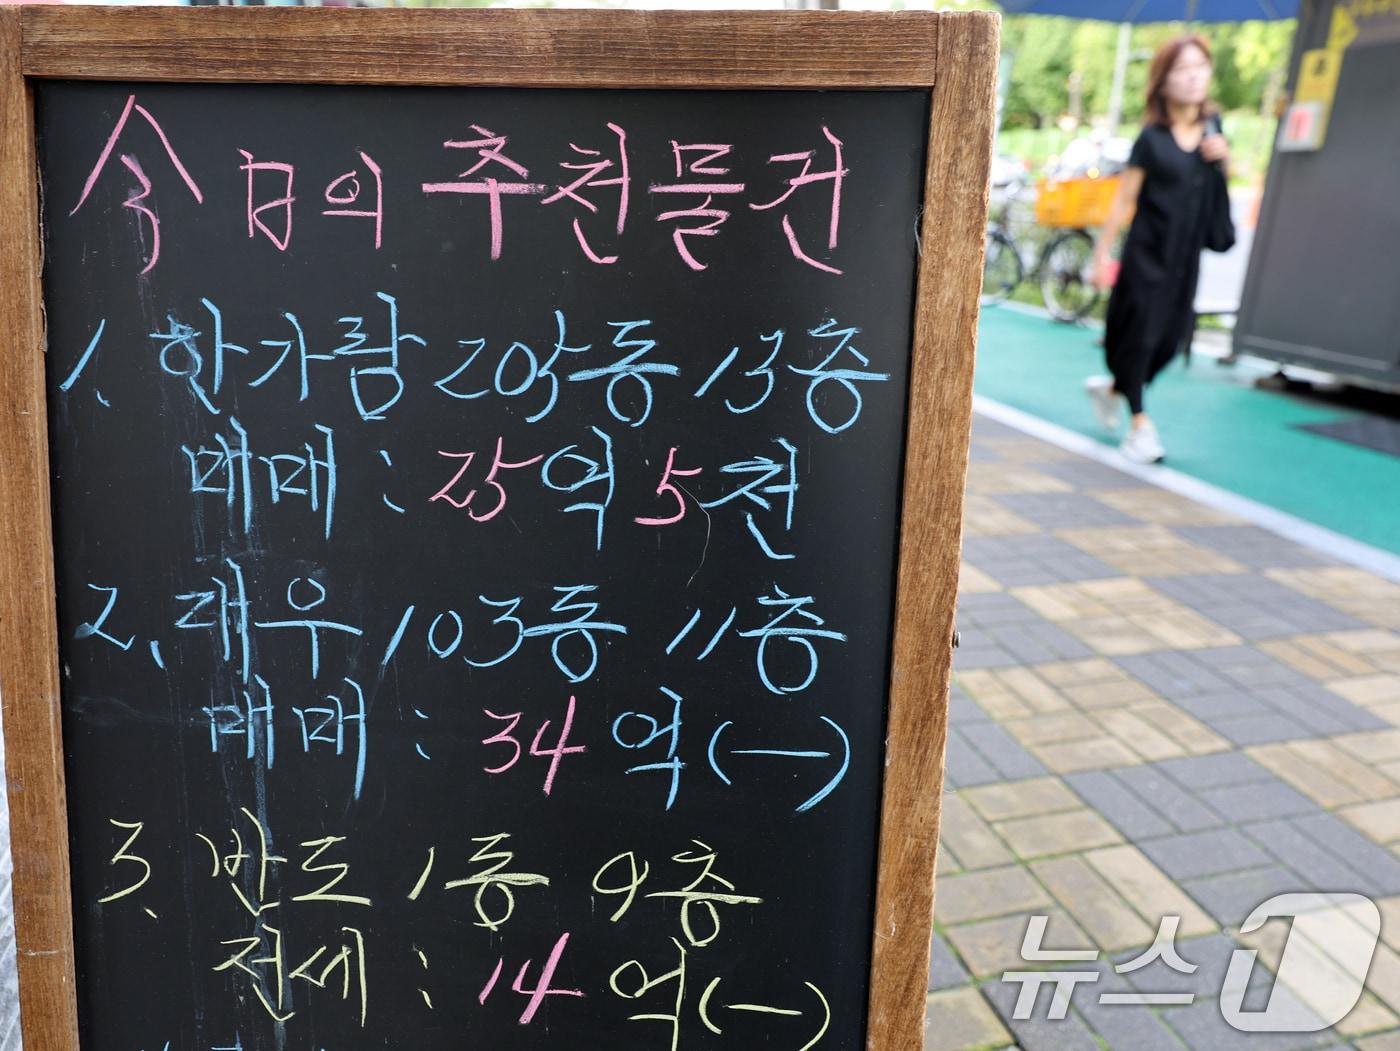 今日의 추천물건
1. 한가람 205동 13층
매매 : 25억 5천
2. 대우 103동 11층
매매 : 34억(一)
3. 반도 1동 9층
전세 : 14억(一)
뉴스1